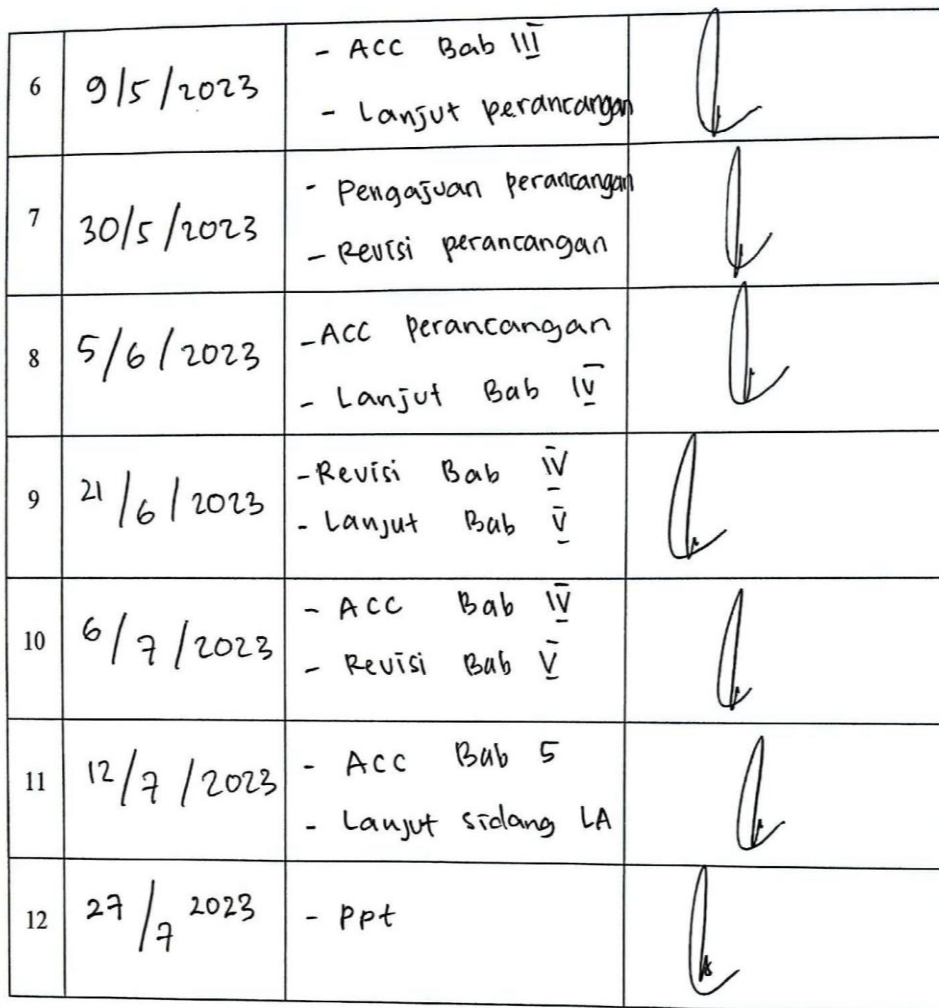 6 9/5/2023 - ACC Bab III
- Lanjut perancangan
7 30/5/2023 - Pengajuan perancangan
- Revisi perancangan
8 5/6/2023 - ACC perancangan
- Lanjut Bab IV
9 21/6/2023 - Revisi Bab IV
- Lanjut Bab V
10 6/7/2023 - ACC Bab IV
- Revisi Bab V
11 12/7/2023 - ACC Bab 5
- Lanjut sidang LA
12 27/7 2023 - ppt